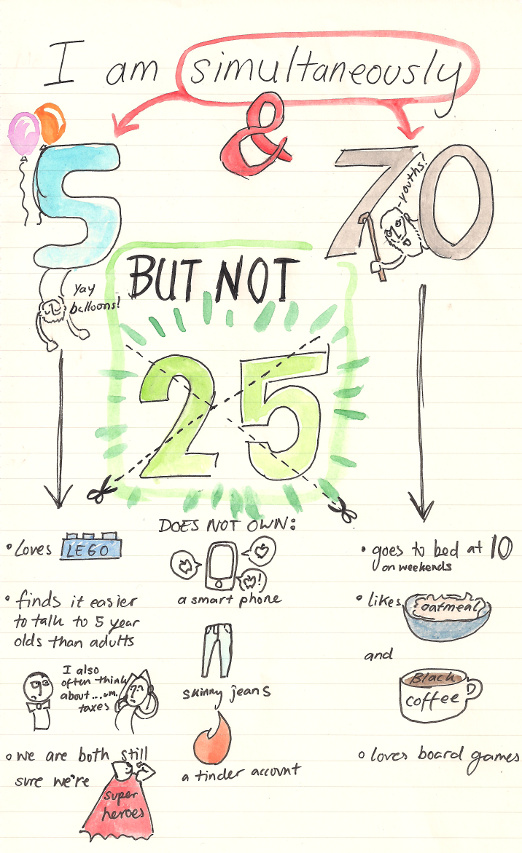 I am simultaneously
&
5
70
-youths!
yay
balloons!
BUT NOT
25
• Loves LEGO
• finds it easier
to talk to 5 year
olds than adults
I also
often think
about...um.
taxes
• we are both still
sure we're
super
heroes
DOES NOT OWN:
!
a smart phone
skinny jeans
a tinder account
• goes to bed at 10
on weekends
• likes oatmeal
and
Black
coffee
• loves board games